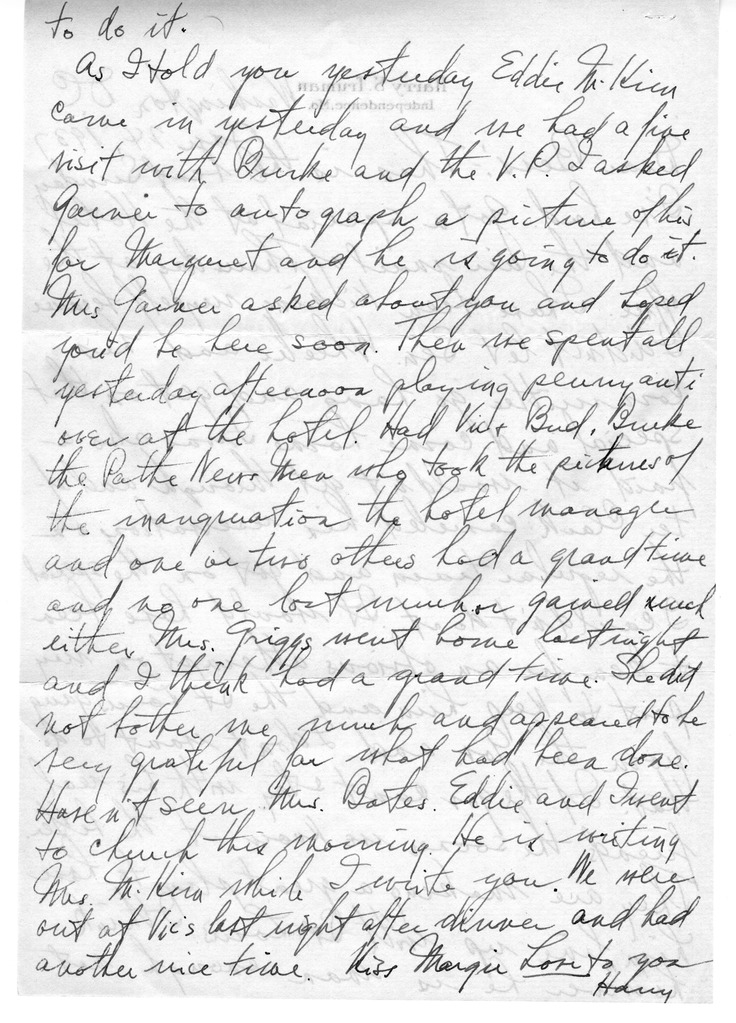 to do it.
As I told you yesterday Eddie McKim
came in yesterday and we had a fine
visit with Burke and the V.P. I asked
Garner to autograph a picture of his
for Margaret and he is going to do it.
Mrs Garner asked about you and hoped
you'd be here soon. Then we spent all
yesterday afternoon playing penny anti
over at the hotel. Had Vic & Bud, Burke
the Pathe News Men who took the pictures of
the inauguration the hotel manager
and one or two others had a grand time
and no one lost much or gained much
either. Mrs. Griggs went home last night
and I think had a grand time. She did
not bother me much and appeared to be
very grateful for what had been done.
Haven't seen Mrs. Bates. Eddie and I went
to church this morning. He is writing
Mrs. McKim while I write you. We were
out at Vic's last night after dinner and had
another nice time. Kiss Margie Love to you
Harry
Harry S. Truman
Independence, Mo.